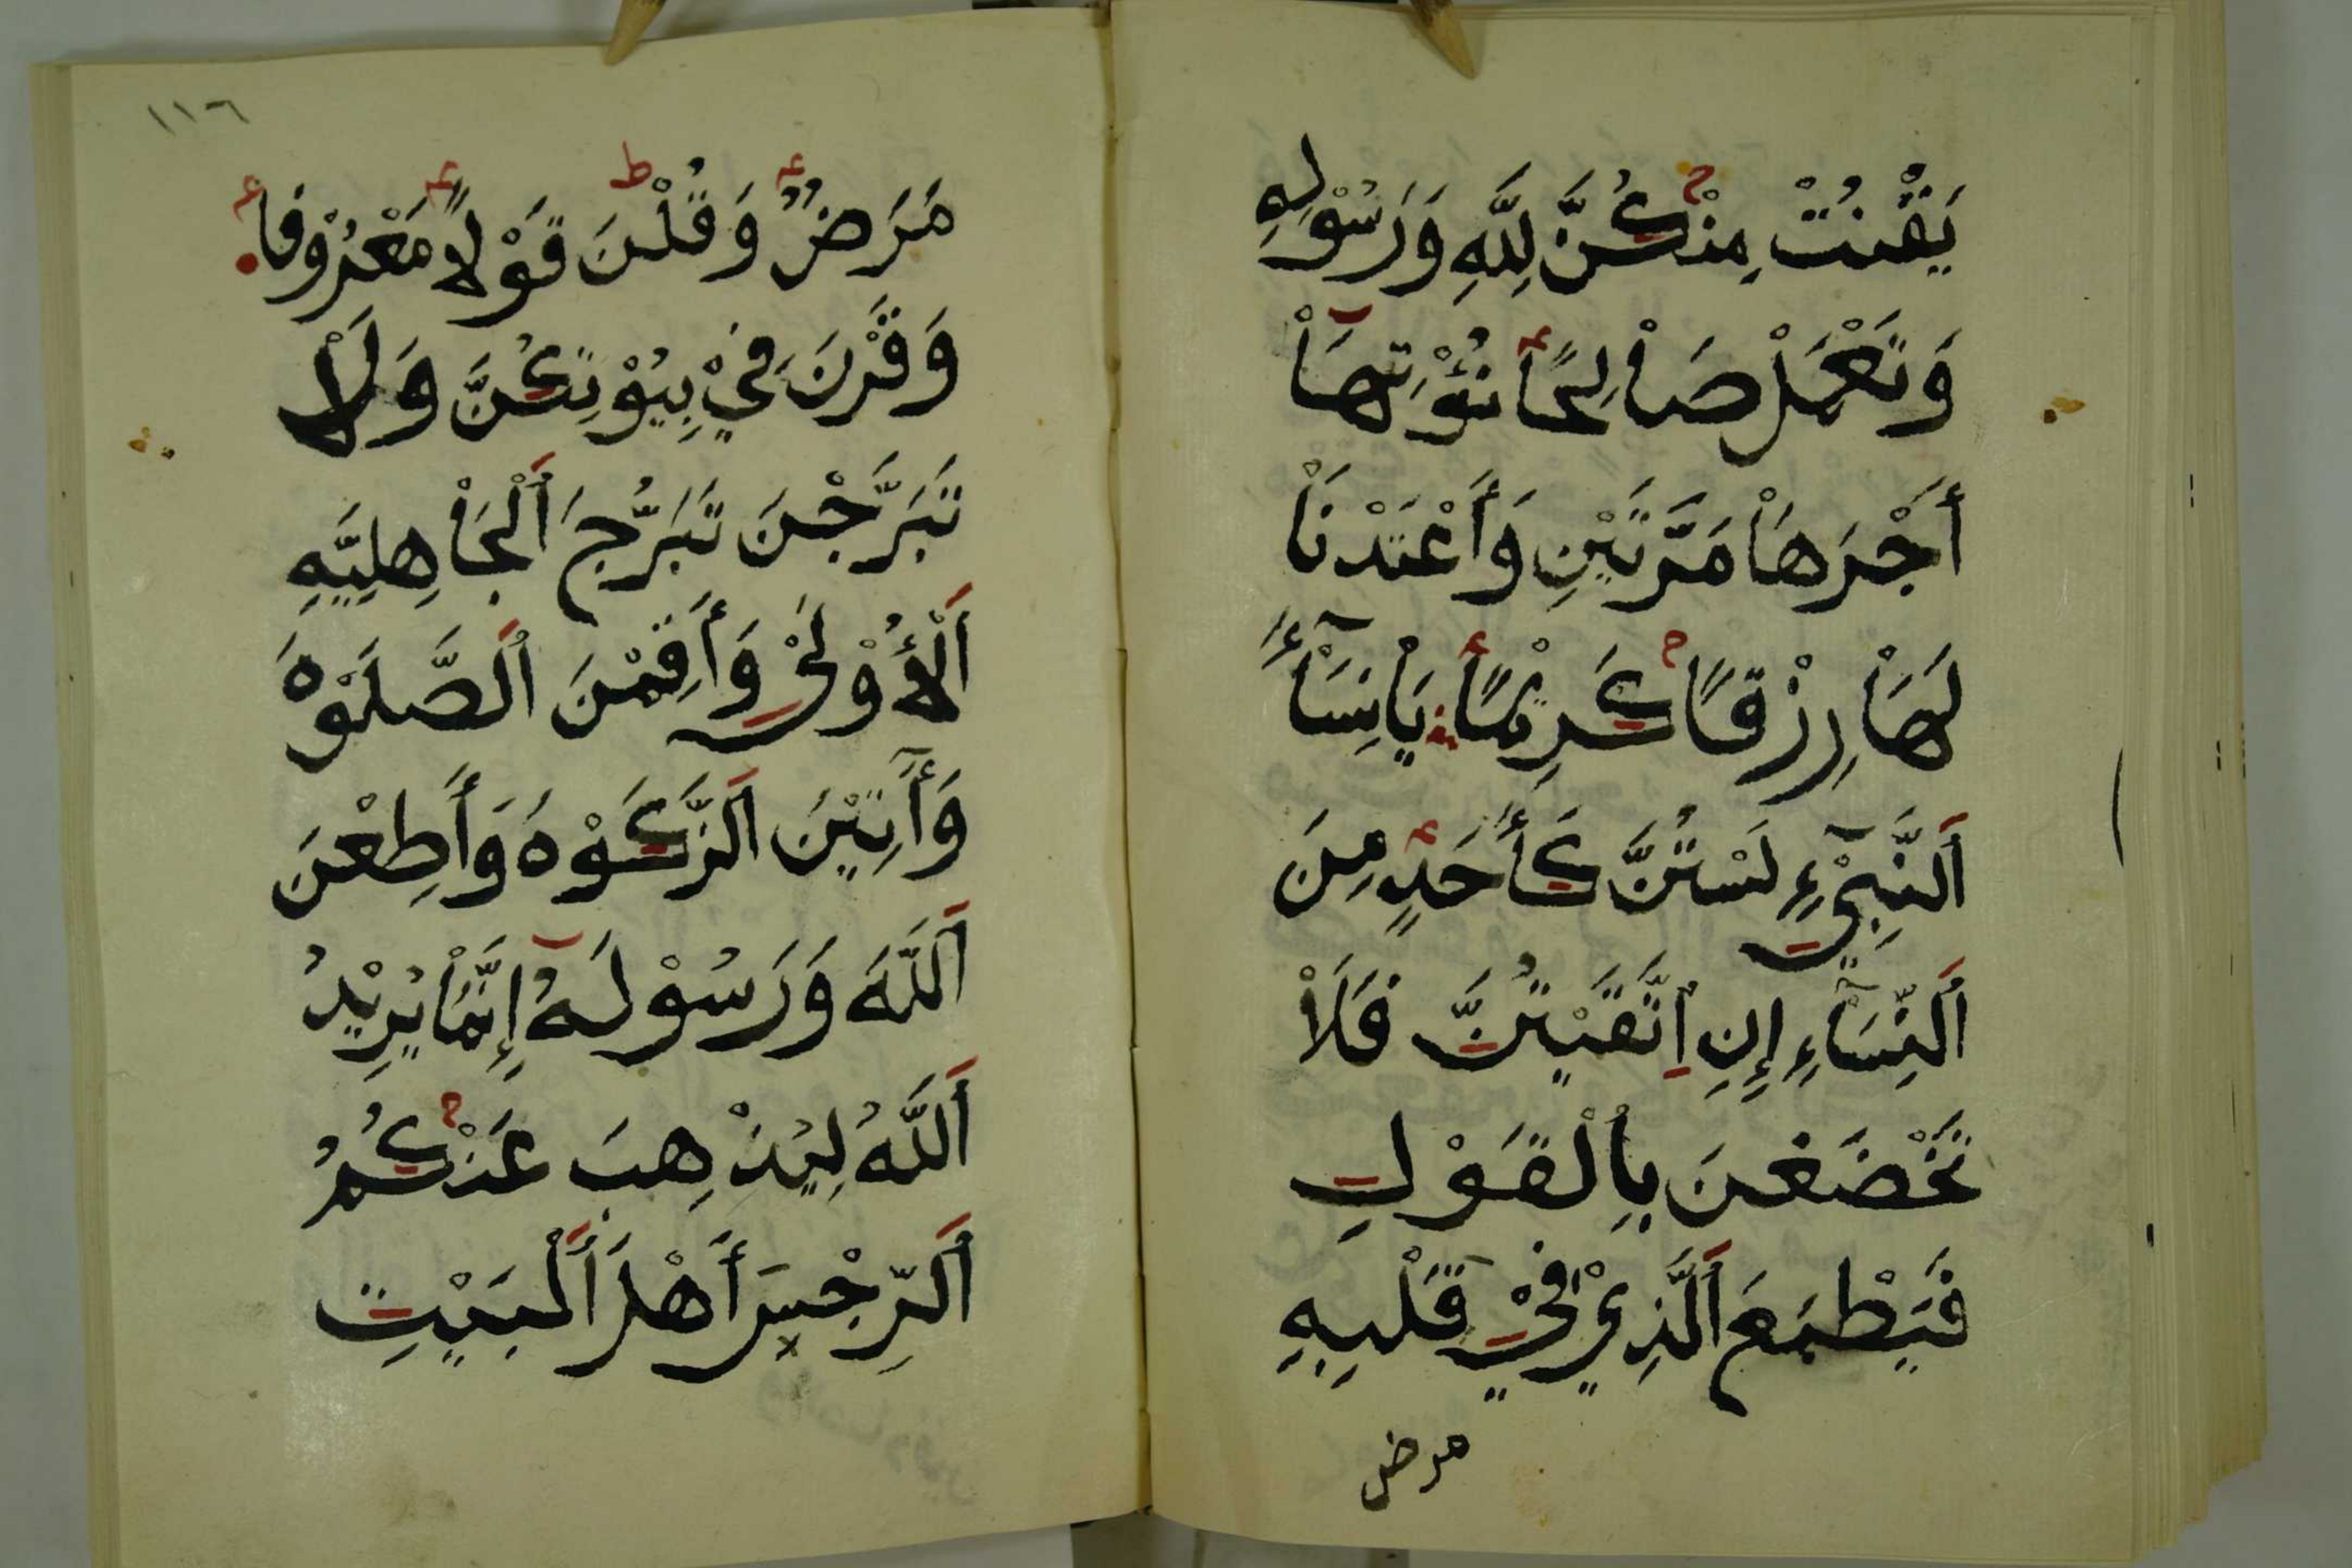 يَقْنُتْ مِنْكُنَّ لِلَّهِ وَرَسُوْلِهِ
وَتَعْمَلْ صَاْلِحًا نُؤْتِهَاْ
أَجْرَهَاْ مَرَّتَيْنِ وَأَعْتَدْنَاْ
لَهَاْ رِزْقًا كَرِيْمًا يَاْنِسَاْءَ
اَلنَّبِيْءِ لَسْتُنَّ كَأَحَدٍ مِنَ
اَلنِّسَاْءِ إِنِ اِتَّقَيْتُنَّ فَلَاْ
تَخْضَعْنَ بِاْلْقَوْلِ
فَيَطْمَعَ اَلَّذِيْ فِيْ قَلْبِهِ
مرض
١١٦
مَرَضٌ وَقُلْنَ قَوْلًا مَعْرُوْفًا
وَقَرْنَ فِيْ بِيُوْتِكُنَّ وَلَاْ
تَبَرَّجْنَ تَبَرُّجَ اَلْجَاْهِلِيَّهِ
اَلْأُوْلَىْ وَأَقِمْنَ اَلصَّلَوْهَ
وَأَاتِيْنَ اَلزَّكَوْهَ وَأَطِعْنَ
اَللَّهَ وَرَسُوْلَهُ إِنَّمَاْ يُرِيْدُ
اَللَّهُ لِيُذْهِبَ عَنْكُمُ
اَلرِّجْسَ أَهْلَ اَلْبَيْتِ